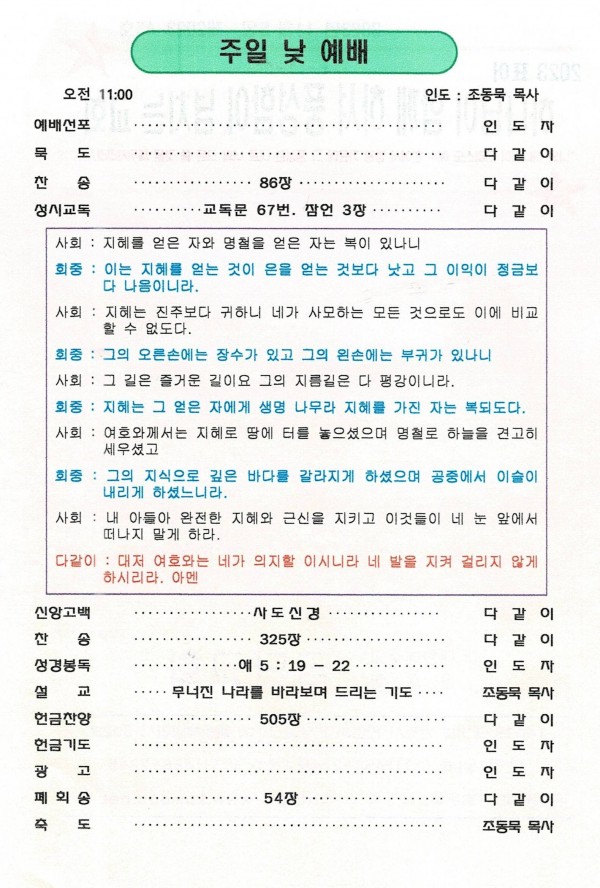 주일 낮 예배
오전 11:00 인도 : 조동묵 목사
예배선포 ········································ 인 도 자
묵 도 ········································ 다 같 이
찬 송 ················ 86장 ···················· 다 같 이
성시교독 ··········교독문 67번. 잠언 3장·········· 다 같 이
사회 : 지혜를 얻은 자와 명철을 얻은 자는 복이 있나니
회중 : 이는 지혜를 얻는 것이 은을 얻는 것보다 낫고 그 이익이 정금보
다 나음이니라.
사회 : 지혜는 진주보다 귀하니 네가 사모하는 모든 것으로도 이에 비교
할 수 없도다.
회중 : 그의 오른손에는 장수가 있고 그의 왼손에는 부귀가 있나니
사회 : 그 길은 즐거운 길이요 그의 지름길은 다 평강이니라.
회중 : 지혜는 그 얻은 자에게 생명 나무라 지혜를 가진 자는 복되도다.
사회 : 여호와께서는 지혜로 땅에 터를 놓으셨으며 명철로 하늘을 견고히
세우셨고
회중 : 그의 지식으로 깊은 바다를 갈라지게 하셨으며 공중에서 이슬이
내리게 하셨느니라.
사회 : 내 아들아 완전한 지혜와 근신을 지키고 이것들이 네 눈 앞에서
떠나지 말게 하라.
다같이 : 대저 여호와는 네가 의지할 이시니라 네 발을 지켜 걸리지 않게
하시리라. 아멘
신앙고백 ·················사도신경················ 다 같 이
찬 송 ················ 325장 ···················· 다 같 이
성경봉독 ···············애 5 : 19 – 22············· 인 도 자
설 교 ····· 무너진 나라를 바라보며 드리는 기도 ···· 조동묵 목사
헌금찬양 ················ 505장 ···················· 다 같 이
헌금기도 ········································ 인 도 자
광 고 ········································ 인 도 자
폐 회 송 ················ 54장 ···················· 다 같 이
축 도 ········································ 조동묵 목사